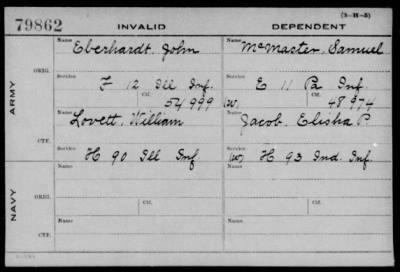 (3-H-5)
79862 INVALID DEPENDENT
Name Eberhardt, John Name McMaster, Samuel
ORIG.
Service F 12 Ill Inf. Service E 11 Pa Inf.
Ctf. 54999 (W) Ctf. 48974
ARMY
Name Lovett, William Name Jacob, Elisha P.
CTF.
Service H 90 Ill Inf Service (W) H 93 Ind. Inf.
Name Name
ORIG.
Service Ctf. Service Ctf.
NAVY
Name Name
CTF.
Service Service